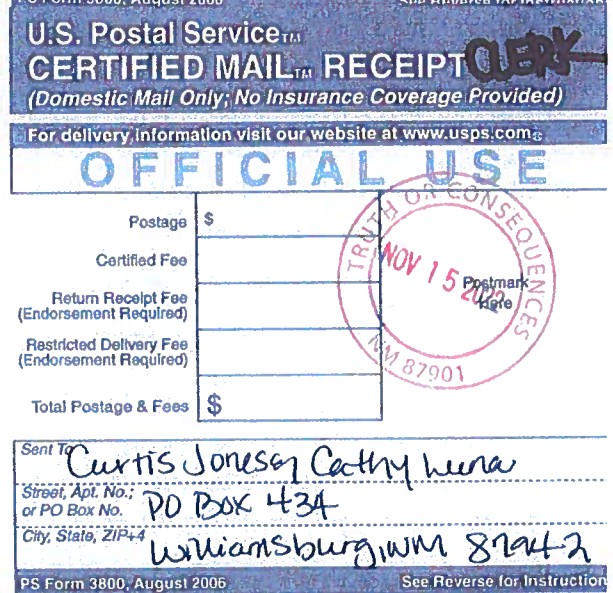 PS Form 3800, August 2006 See Reverse for Instructions
U.S. Postal Service TM
CERTIFIED MAIL TM RECEIPT CLERK
(Domestic Mail Only; No Insurance Coverage Provided)
For delivery information visit our website at www.usps.com®
OFFICIAL USE
Postage $
Certified Fee
Return Receipt Fee
(Endorsement Required)
Restricted Delivery Fee
(Endorsement Required)
Total Postage & Fees $
TRUTH OR CONSEQUENCES
NOV 15 2022
NM 87901
Postmark
Here
Sent To Curtis Jones & Cathy Luna
Street, Apt. No.;
or PO Box No. PO Box 434
City, State, ZIP+4 Williamsburg, NM 87942
PS Form 3800, August 2006 See Reverse for Instruction